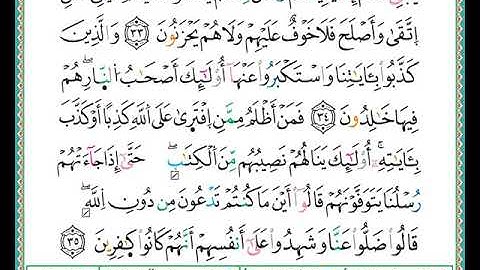 اِ۪تَّق۪ىٰ وَأَصْلَحَ فَلَا خَوْفٌ عَلَيْهِمْ وَلَا هُمْ يَحْزَنُونَ ٣٣ وَالَّذِينَ
كَذَّبُوا بِـَٔايَٰتِنَا وَاسْتَكْبَرُوا عَنْهَا أُوْلَٰٓئِكَ أَصْحَٰبُ النّ۪ارِ هُمْ
فِيهَا خَٰلِدُونَ ٣٤ فَمَنْ أَظْلَمُ مِمَّنِ اِفْتَر۪ىٰ عَلَى اللَّهِ كَذِبًا أَوْ كَذَّبَ
بِـَٔايَٰتِهِ أُوْلَٰٓئِكَ يَنَالُهُمْ نَصِيبُهُم مِّنَ الْكِتَٰبِ حَتَّىٰٓ إِذَا جَآءَتْهُمْ
رُسْلُنَا يَتَوَفَّوْنَهُمْ قَالُوا أَيْنَ مَا كُنتُمْ تَدْعُونَ مِن دُونِ اللَّهِ
قَالُوا ضَلُّوا عَنَّا وَشَهِدُوا عَلَىٰٓ أَنفُسِهِمْ أَنَّهُمْ كَانُوا كٰ۪فِرِينَ ٣٥